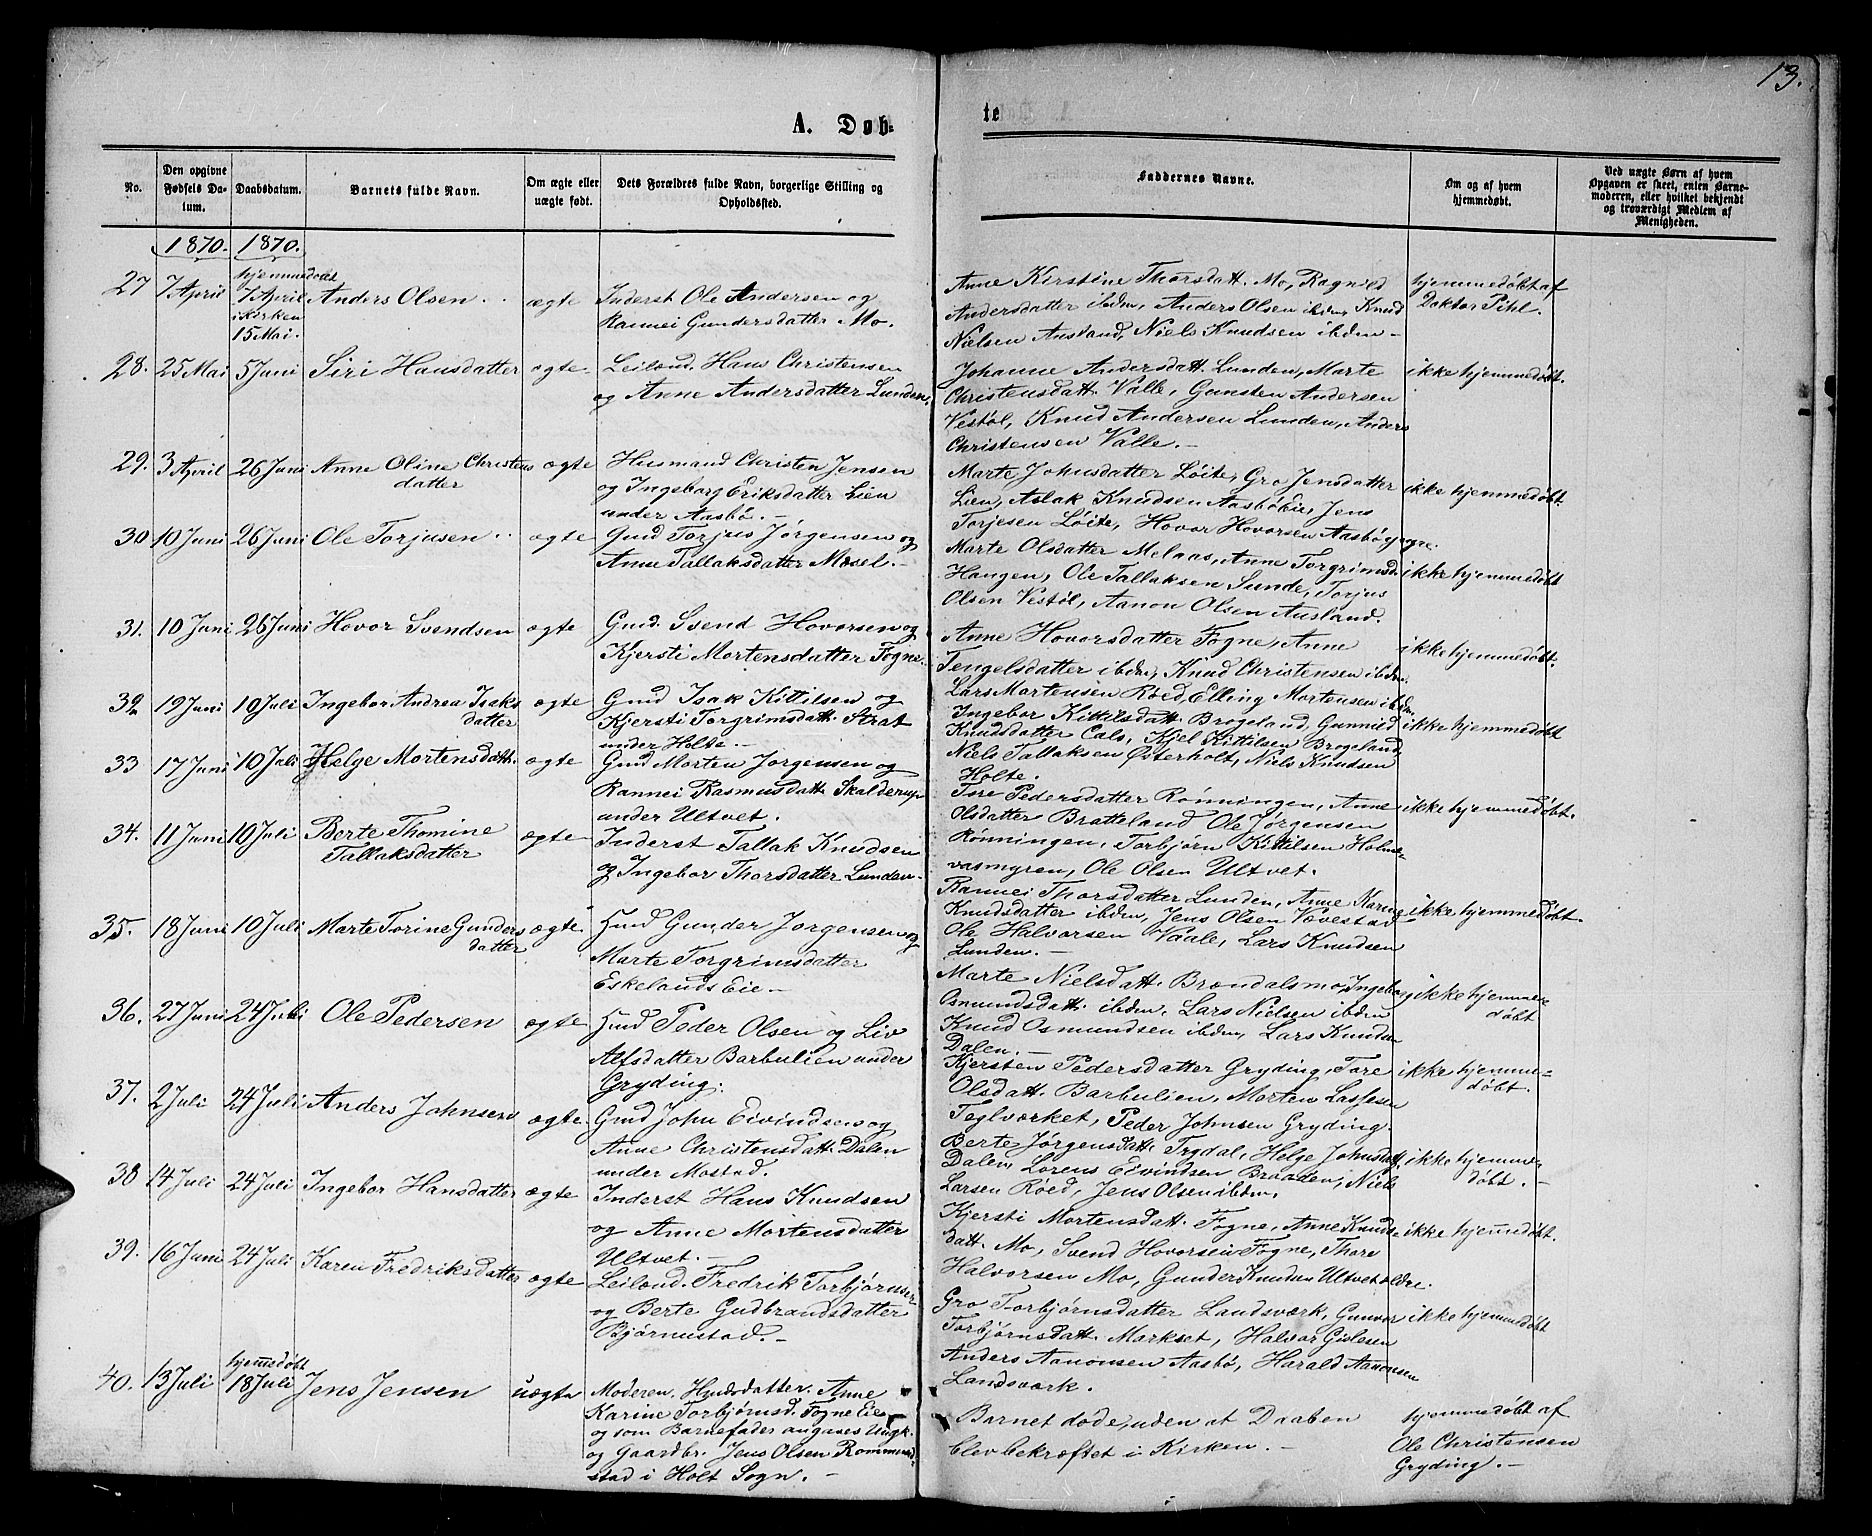 13.
A. Døb-
te
No.
Den opgivne Fødsels Da-tum.
Daabsdatum.
Barnets fulde Navn.
Om ægte eller uægte født.
Dets Forældres fulde Navn, borgerlige Stilling og Opholdssted.
Faddernes Navne.
Om og af hvem hjemmedøbt.
Ved uægte Børn af hvem Opgaven er skeet, enten Barne-moderen, eller hvilket bekjendt og troværdigt Medlem af Menigheden.
1870. 1870.
27 7 April hjemmedøbt 7 April i kirken 15 Mai. Anders Olsen ægte
Inderst Ole Andersen og
Rannei Gundersdatter Mo.
Anne Kirstine Thorsdatt. Mo, Ragnild
Andersdatter ibdm, Anders Olsen ibdm, Knud
Nielsen Ausland, Niels Knudsen ibdm.-
hjemmedøbt af
Doktor Pihl.
28. 25 Mai 5 Juni Siri Hansdatter ægte
Leilænd. Hans Christensen
og Anne Andersdatter Lunden.
Johanne Andersdatt. Lunden, Marte
Christensdatt. Valle, Gunsten Andersen
Vestøl, Knud Andersen Lunden, Anders
Christensen Valle.-
ikke hjemmedøbt.
29. 3 April 26 Juni Anne Oline Christens
datter ægte
Husmand Christen Jensen
og Ingeborg Eriksdatter Lien
under Aasbø.-
Marte Johnsdatter Løite, Gro Jensdatter
Lien, Aslak Knudsen Aasbøeie, Jens
Torjesen Løite, Hovor Hovorsen Aasbø yngre.
ikke hjemmedøbt.
30 10 Juni 26 Juni Ole Torjusen ægte
Gmd Torjus Jørgensen og
Anne Tallaksdatter Mæsel.-
Marte Olsdatter Melaas, Anne Torgrimsd.
Haugen, Ole Tallaksen Sunde, Torjus
Olsen Vestøl, Aanon Olsen Ausland.
ikke hjemmedøbt
31. 10 Juni 26 Juni Hovor Svendsen ægte
Gmd. Svend Hovorsen og
Kjersti Mortensdatter Fogne.
Anne Hovorsdatter Fogne, Anne
Tengelsdatter ibdm, Knud Christensen ibdm.
Lars Mortensen Røed, Elling Mortensen ibdm.
ikke hjemmedøbt.
32 19 Juni 10 Juli Ingebor Andrea Isaks
datter ægte
Gmd Isak Kittilsen og
Kjersti Torgrimsdatt. Strat
under Holte.-
Ingebor Kittilsdatt. Brogeland, Gunnild
Knudsdatter Cals, Kjel Kittilsen Brogeland,
Niels Tallaksen Østerholt, Niels Knudsen
Holte.
ikke hjemmedøbt
33 17 Juni 10 Juli Helge Mortensdatt. ægte
Gmd Morten Jørgensen og
Rannei Rasmusdatt. Skalderup
under Ultvet.
Tore Pedersdatter Rønningen, Anne
Olsdatter Bratteland Ole Jørgensen
Rønningen, Torbjørn Kittilsen Holme-
vasmyren, Ole Olsen Ultvet.
ikke hjemmedøbt.
34. 11 Juni 10 Juli Berte Thomine
Tallaksdatter ægte
Inderst Tallak Knudsen
og Ingebor Thorsdatter Lunden.
Rannei Thorsdatter Lunden, Anne Karine
Knudsdatter ibdm, Jens Olsen Vævestad
Ole Halvorsen Vaale, Lars Knudsen
Lunden.-
ikke hjemmedøbt.
35. 18 Juni 10 Juli Marte Torine Gunders
datter ægte
Gmd Gunder Jørgensen og
Marte Torgrimsdatter
Eskelands Eie-
Marte Nielsdatt. Brændalsmo, Ingeborg
Osmundsdatt. ibdm, Lars Nielsen ibdm
Knud Osmundsen ibdm, Lars Knudsen
Dalen.-
ikke hjemme-
døbt
36. 27 Juni 24 Juli Ole Pedersen ægte
Gmd Peder Olsen og Liv
Alfsdatter Barbulien under
Gryding.
Kjersten Pedersdatter Gryding, Tore
Olsdatt. Barbulien, Morten Lassesen
Teglværket, Peder Johnsen Gryding.
ikke hjemme-
døbt.
37. 2 Juli 24 Juli Anders Johnsen ægte
Gmd John Eivindsen og
Anne Christensdatt. Dalen
under Mostad.
Berte Jørgensdatt. Trydal, Helge Johnsdatt.
Dalen, Lorens Eivindsen Braaten, Niels
Larsen Røed, Jens Olsen ibdm.
ikke hjemme-
døbt.-
38 14 Juli 24 Juli Ingebor Hansdatter ægte
Inderst Hans Knudsen
og Anne Mortensdatter
Ultvet.-
Kjersti Mortensdatt. Fogne, Anne Knuds-
datt. Mo, Svend Hovorsen Fogne, Thore
Halvorsen Mo, Gunder Knudsen Ultvet ældre.
ikke hjemmedøbt.
39. 16 Juni 24 Juli Karen Fredriksdatter ægte
Leilænd. Fredrik Torbjørnsen
og Berte Gudbrandsdatter
Bjørnestad.-
Gro Torbjørnsdatter Landsværk, Gunvor
Torbjørnsdatt. Markset, Halvor Gislesen
Anders Aanonsen Aasbø, Harald Aanonsen
Landsværk.
ikke hjemmedøbt
40. 13 Juli hjemedøbt 18 Juli Jens Jensen uægte
Moderen, Hmdsdatter. Anne
Karine Torbjørnsd. Fogne Eie
og som Barnefader angaves Ungk.
og Gaardbr. Jens Olsen Rommen-
stad i Holt Sogn.-
Barnet døde, uden at Daaben
blev bekræftet i Kirken.-
hjemmedøbt af
Ole Christensen
Gryding.-